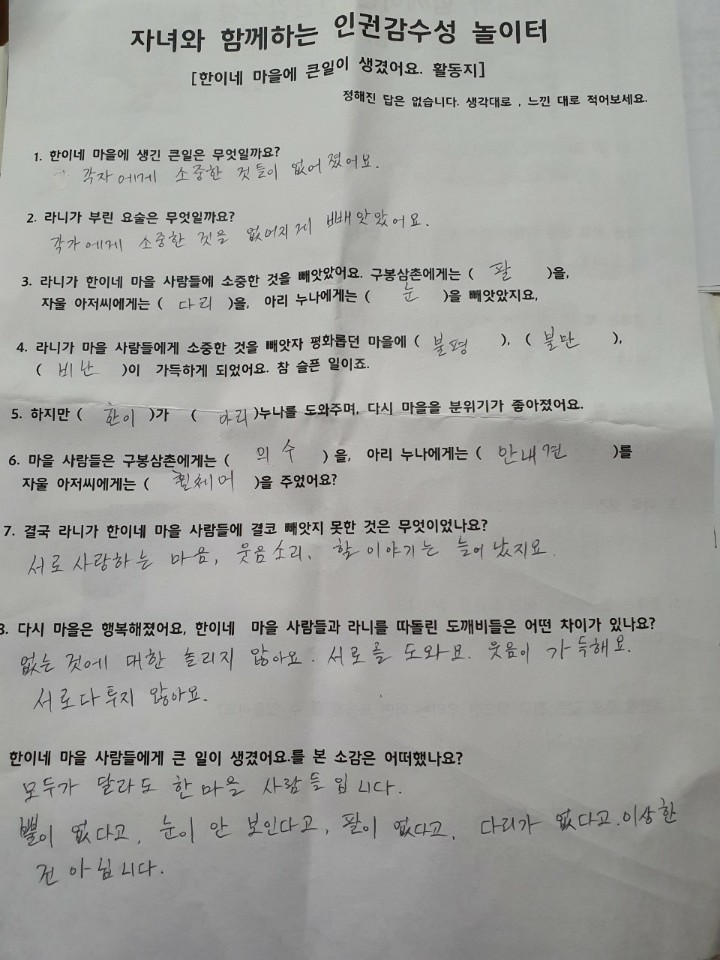 자녀와 함께하는 인권감수성 놀이터
[한이네 마을에 큰일이 생겼어요. 활동지]
정해진 답은 없습니다. 생각대로 , 느낀 대로 적어보세요.
1. 한이네 마을에 생긴 큰일은 무엇일까요?
각자에게 소중한 것들이 없어졌어요.
2. 라니가 부린 요술은 무엇일까요?
각가에게 소중한 것을 없어지게 빼앗았어요.
3. 라니가 한이네 마을 사람들에 소중한 것을 빼앗았어요. 구봉삼촌에게는 ( 팔 )을,
자울 아저씨에게는 ( 다리 )을, 아리 누나에게는 ( 눈 )을 빼앗았지요,
4. 라니가 마을 사람들에게 소중한 것을 빼앗자 평화롭던 마을에 ( 불평 ), ( 불만 ),
( 비난 )이 가득하게 되었어요. 참 슬픈 일이죠.
5. 하지만 ( 한이 )가 ( 아리 )누나를 도와주며, 다시 마을을 분위기가 좋아졌어요.
6. 마을 사람들은 구봉삼촌에게는 ( 의수 ) 을, 아리 누나에게는 ( 안내견 )를
자울 아저씨에게는 ( 휠체어 )을 주었어요?
7. 결국 라니가 한이네 마을 사람들에 결코 빼앗지 못한 것은 무엇이었나요?
서로 사랑하는 마음, 웃음소리, 할 이야기는 늘어났지요.
8. 다시 마을은 행복해졌어요, 한이네 마을 사람들과 라니를 따돌린 도깨비들은 어떤 차이가 있나요?
없는 것에 대한 놀리지 않아요. 서로를 도와요. 웃음이 가득해요.
서로 다투지 않아요.
한이네 마을 사람들에게 큰 일이 생겼어요.를 본 소감은 어떠했나요?
모두가 달라도 한 마을 사람들입니다.
뿔이 없다고, 눈이 안 보인다고, 팔이 없다고, 다리가 없다고. 이상한
건 아닙니다.